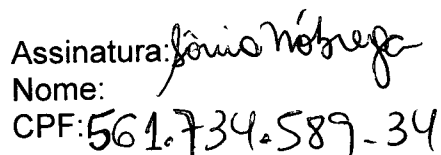 Assinatura: Sônia Nóbrega
Nome:
CPF: 561.734.589-34